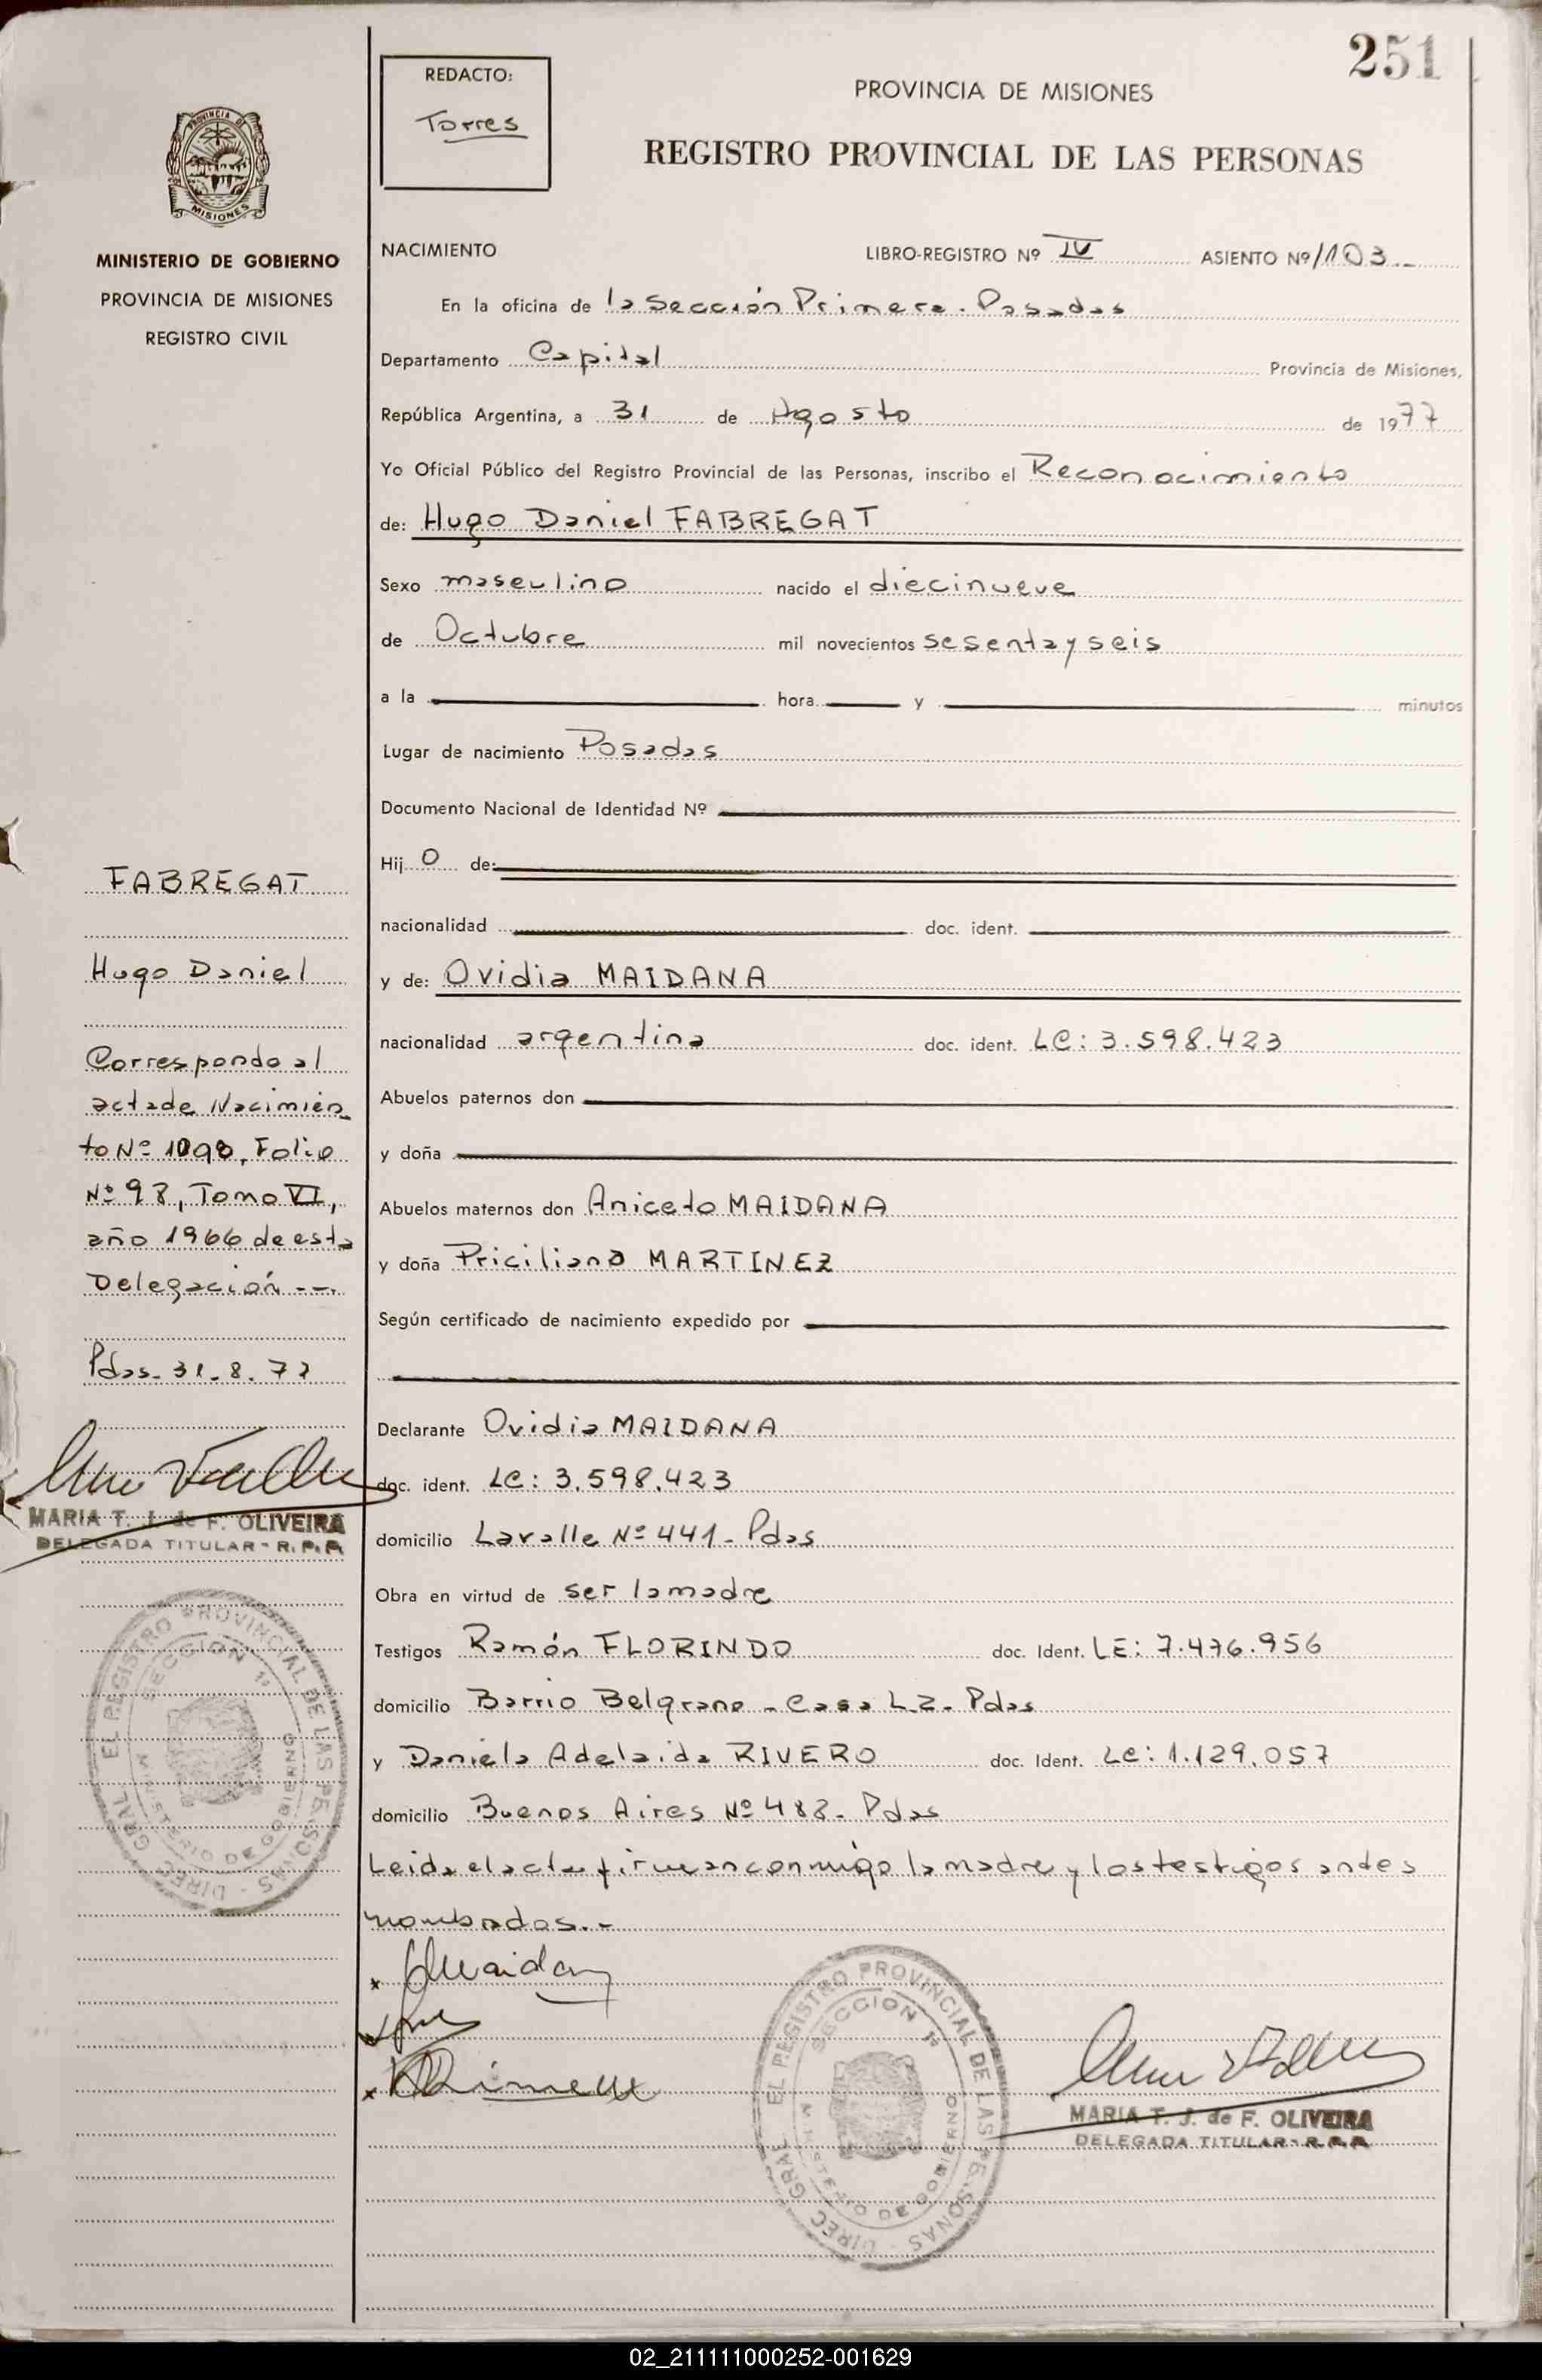 251
REDACTO:
Torres
PROVINCIA DE MISIONES
REGISTRO PROVINCIAL DE LAS PERSONAS
PROVINCIA DE
MISIONES
MINISTERIO DE GOBIERNO
PROVINCIA DE MISIONES
REGISTRO CIVIL
NACIMIENTO LIBRO-REGISTRO Nº IV ASIENTO Nº 1103
En la oficina de la Sección Primera. Posadas
Departamento Capital Provincia de Misiones,
República Argentina, a 31 de Agosto de 1977
Yo Oficial Público del Registro Provincial de las Personas, inscribo el Reconocimiento
de: Hugo Daniel FABREGAT
Sexo masculino nacido el diecinueve
de Octubre mil novecientos sesenta y seis
a la hora y minutos
Lugar de nacimiento Posadas
Documento Nacional de Identidad Nº
Hij o de:
nacionalidad doc. ident.
y de: Ovidia MAIDANA
nacionalidad argentina doc. ident. LC: 3.598.423
Abuelos paternos don
y doña
Abuelos maternos don Aniceto MAIDANA
y doña Priciliana MARTINEZ
Según certificado de nacimiento expedido por
Declarante Ovidia MAIDANA
doc. ident. LC: 3.598.423
domicilio Lavalle Nº 441 - Pdas
Obra en virtud de ser la madre
Testigos Ramón FLORINDO doc. Ident. LE: 7.476.956
domicilio Barrio Belgrano - Casa - Pdas
y Daniela Adelaida RIVERO doc. Ident. LC: 1.129.057
domicilio Buenos Aires Nº 483 - Pdas
Leida el acta firman conmigo la madre y los testigos antes
nombrados.-
FABREGAT
Hugo Daniel
Corresponde al
acta de Nacimien
to Nº 1098, Folio
Nº 98, Tomo VI,
año 1966 de esta
Delegación --.
Pdas. 31.8.77
MARIA T. J. de F. OLIVEIRA
DELEGADA TITULAR - R.P.P.
DIREC GRAL EL REGISTRO PROVINCIAL DE LAS PERSONAS
SECCION 1ª
MINISTERIO DE GOBIERNO
DIREC GRAL EL REGISTRO PROVINCIAL DE LAS PERSONAS
SECCION 1ª
MINISTERIO DE GOBIERNO
MARIA T. J. de F. OLIVEIRA
DELEGADA TITULAR - R.P.P.
02_211111000252-001629